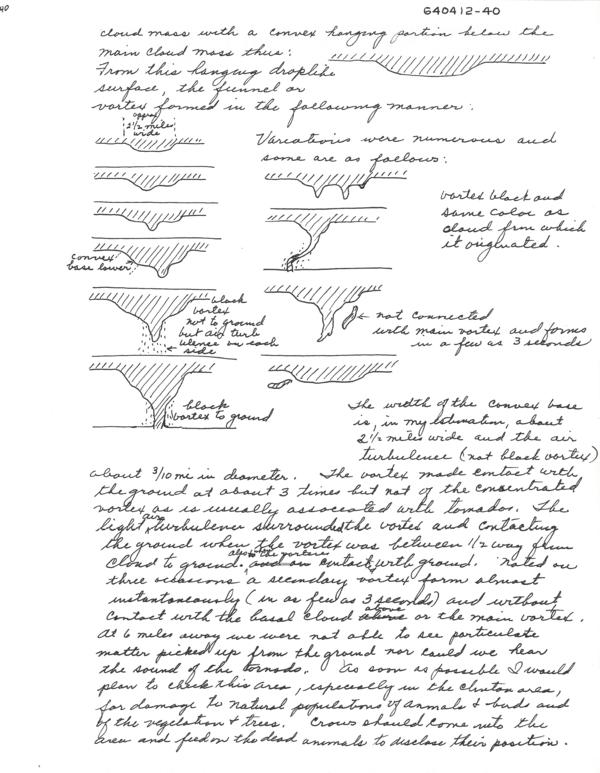 40
640412-40
cloud mass with a convex hanging portion below the
main cloud mass thus:
From this hanging droplike
surface, the funnel or
vortex formed in the following manner:
approx
2 1/2 miles
wide
Variations were numerous and
some are as follows:
vortex black and
same color as
cloud from which
it originated.
convex
base lower
black
vortex
not to ground
but air turb
ulence on each
side
← not connected
with main vortex and forms
in a few as 3 seconds
black
vortex to ground
The width of the convex base
is, in my estimation, about
2 1/2 miles wide and the air
turbulence (not black vortex)
about 3/10 mi in diameter. The vortex made contact with
the ground at about 3 times but not of the concentrated
vortex as is usually associated with tornados. The
light air turbulence surrounded the vortex and contacting
the ground when the vortex was between 1/2 way from
cloud to ground. also the vortex and on contact with ground. Noted on
three occasions a secondary vortex form almost
instantaneously (in as few as 3 seconds) and without
contact with the basal cloud above or the main vortex.
At 6 miles away we were not able to see particulate
matter picked up from the ground nor could we hear
the sound of the tornado. As soon as possible I would
plan to check this area, especially in the Clinton area,
for damage to natural populations of animals & birds and
of the vegetation & trees. Crows should come into the
area and feed on the dead animals to disclose their position.